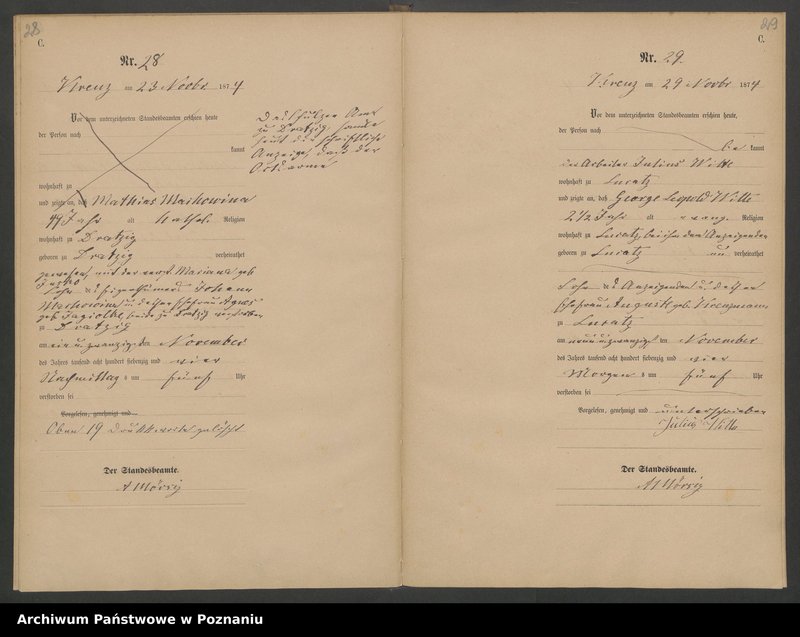 28
C.
Nr. 28
Kreuz am 23 Novbr. 1874
Vor dem unterzeichneten Standesbeamten erschien heute
der Person nach
kannt
Das Schulzen Amt
zu Dratzig sandte
heut die schriftliche
Anzeige, daß der
Ortsarme
wohnhaft zu
und zeigte an, daß Mathias Machowina
49 Jahr alt kathol. Religion
wohnhaft zu Dratzig
geboren zu Dratzig verheirathet
gewesen, mit der verst. Mariana geb
Sohn des Eigenthümers Johann
Machowina u. dessen Ehefrau Agnes
geb. beide zu Dratzig verstorben
zu Dratzig
am ein u. zwanzigsten November
des Jahres tausend acht hundert siebenzig und vier
Nachmittag s um fünf Uhr
verstorben sei
Vorgelesen, genehmigt und
Oben 19 Druckworte gelöscht
Der Standesbeamte.
29
C.
Nr. 29.
Kreuz am 29 Novbr. 1874
Vor dem unterzeichneten Standesbeamten erschien heute
der Person nach
be kannt
der Arbeiter Julius Witte
wohnhaft zu Lucatz
und zeigte an, daß George Leopold Witte
2 1/2 Jahr alt evang. Religion
wohnhaft zu Lucatz, bei ihm dem Anzeigenden
geboren zu Lucatz un verheirathet
Sohn des Anzeigenden u. dessen
Ehefrau Auguste geb.
zu Lucatz
am neun u. zwanzigsten November
des Jahres tausend acht hundert siebenzig und vier
Morgen s um fünf Uhr
verstorben sei
Vorgelesen, genehmigt und unterschrieben
Julius Witte
Der Standesbeamte.
Archiwum Państwowe w Poznaniu